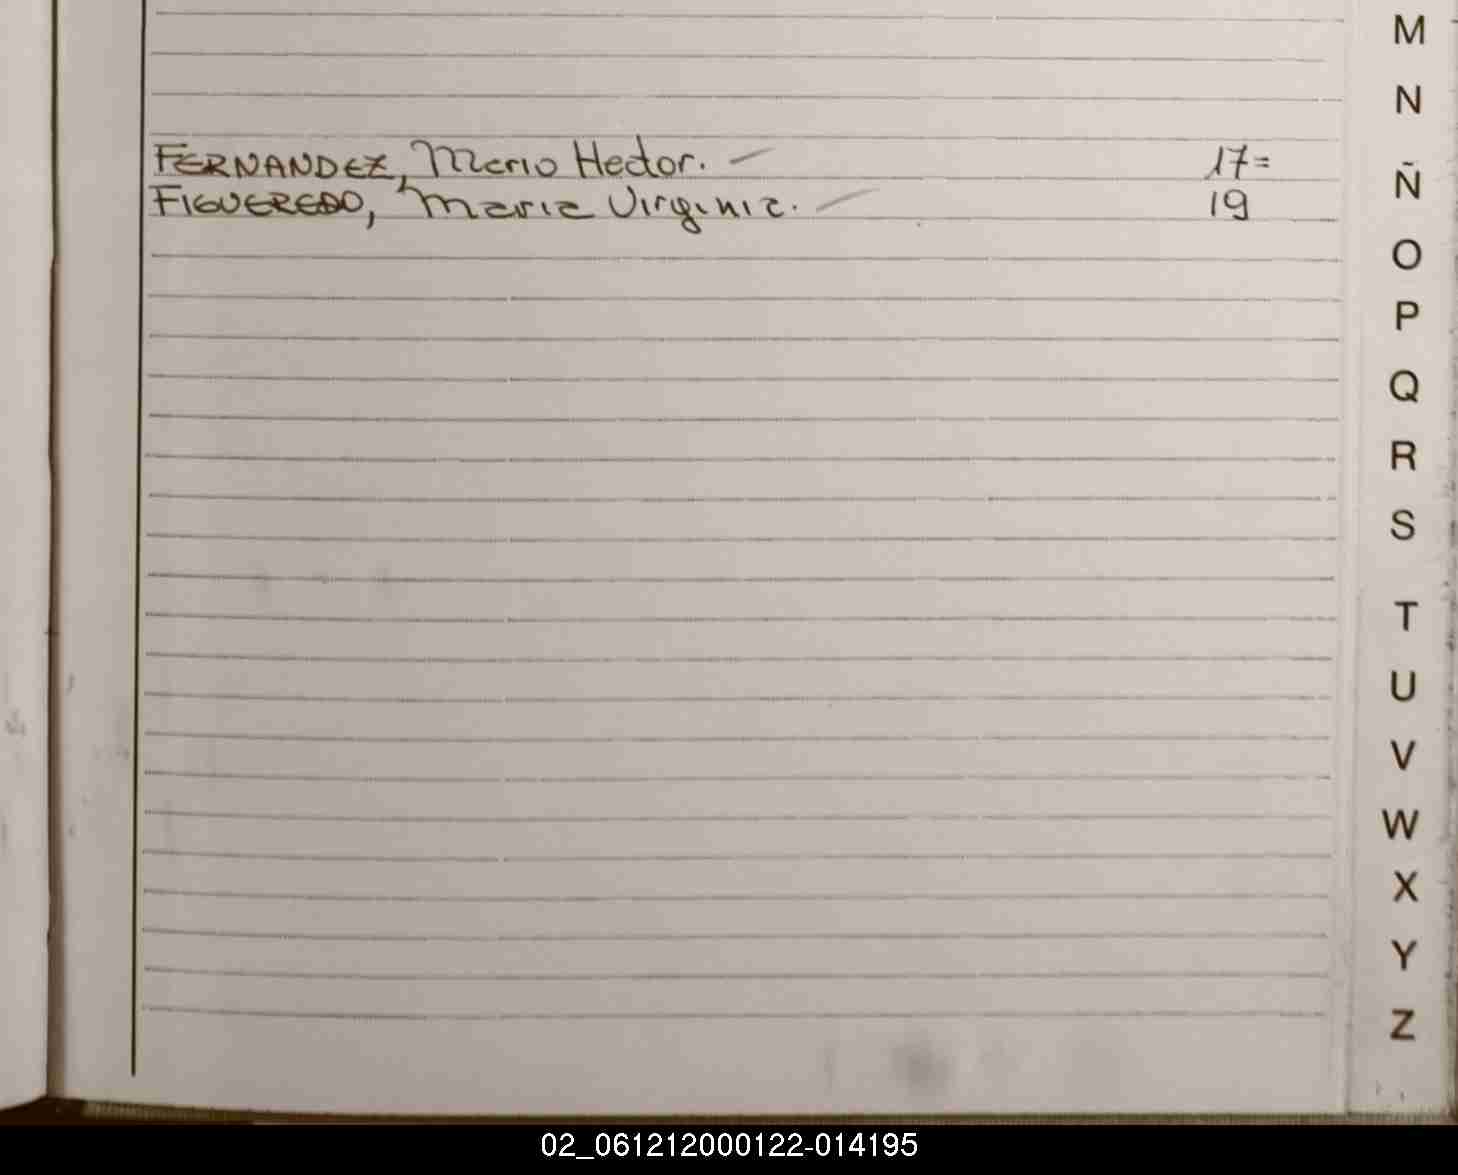 FERNANDEZ, Mario Hector. — 17=
FIGUEREDO, Maria Virginia. — 19
M
N
Ñ
O
P
Q
R
S
T
U
V
W
X
Y
Z
02_061212000122-014195